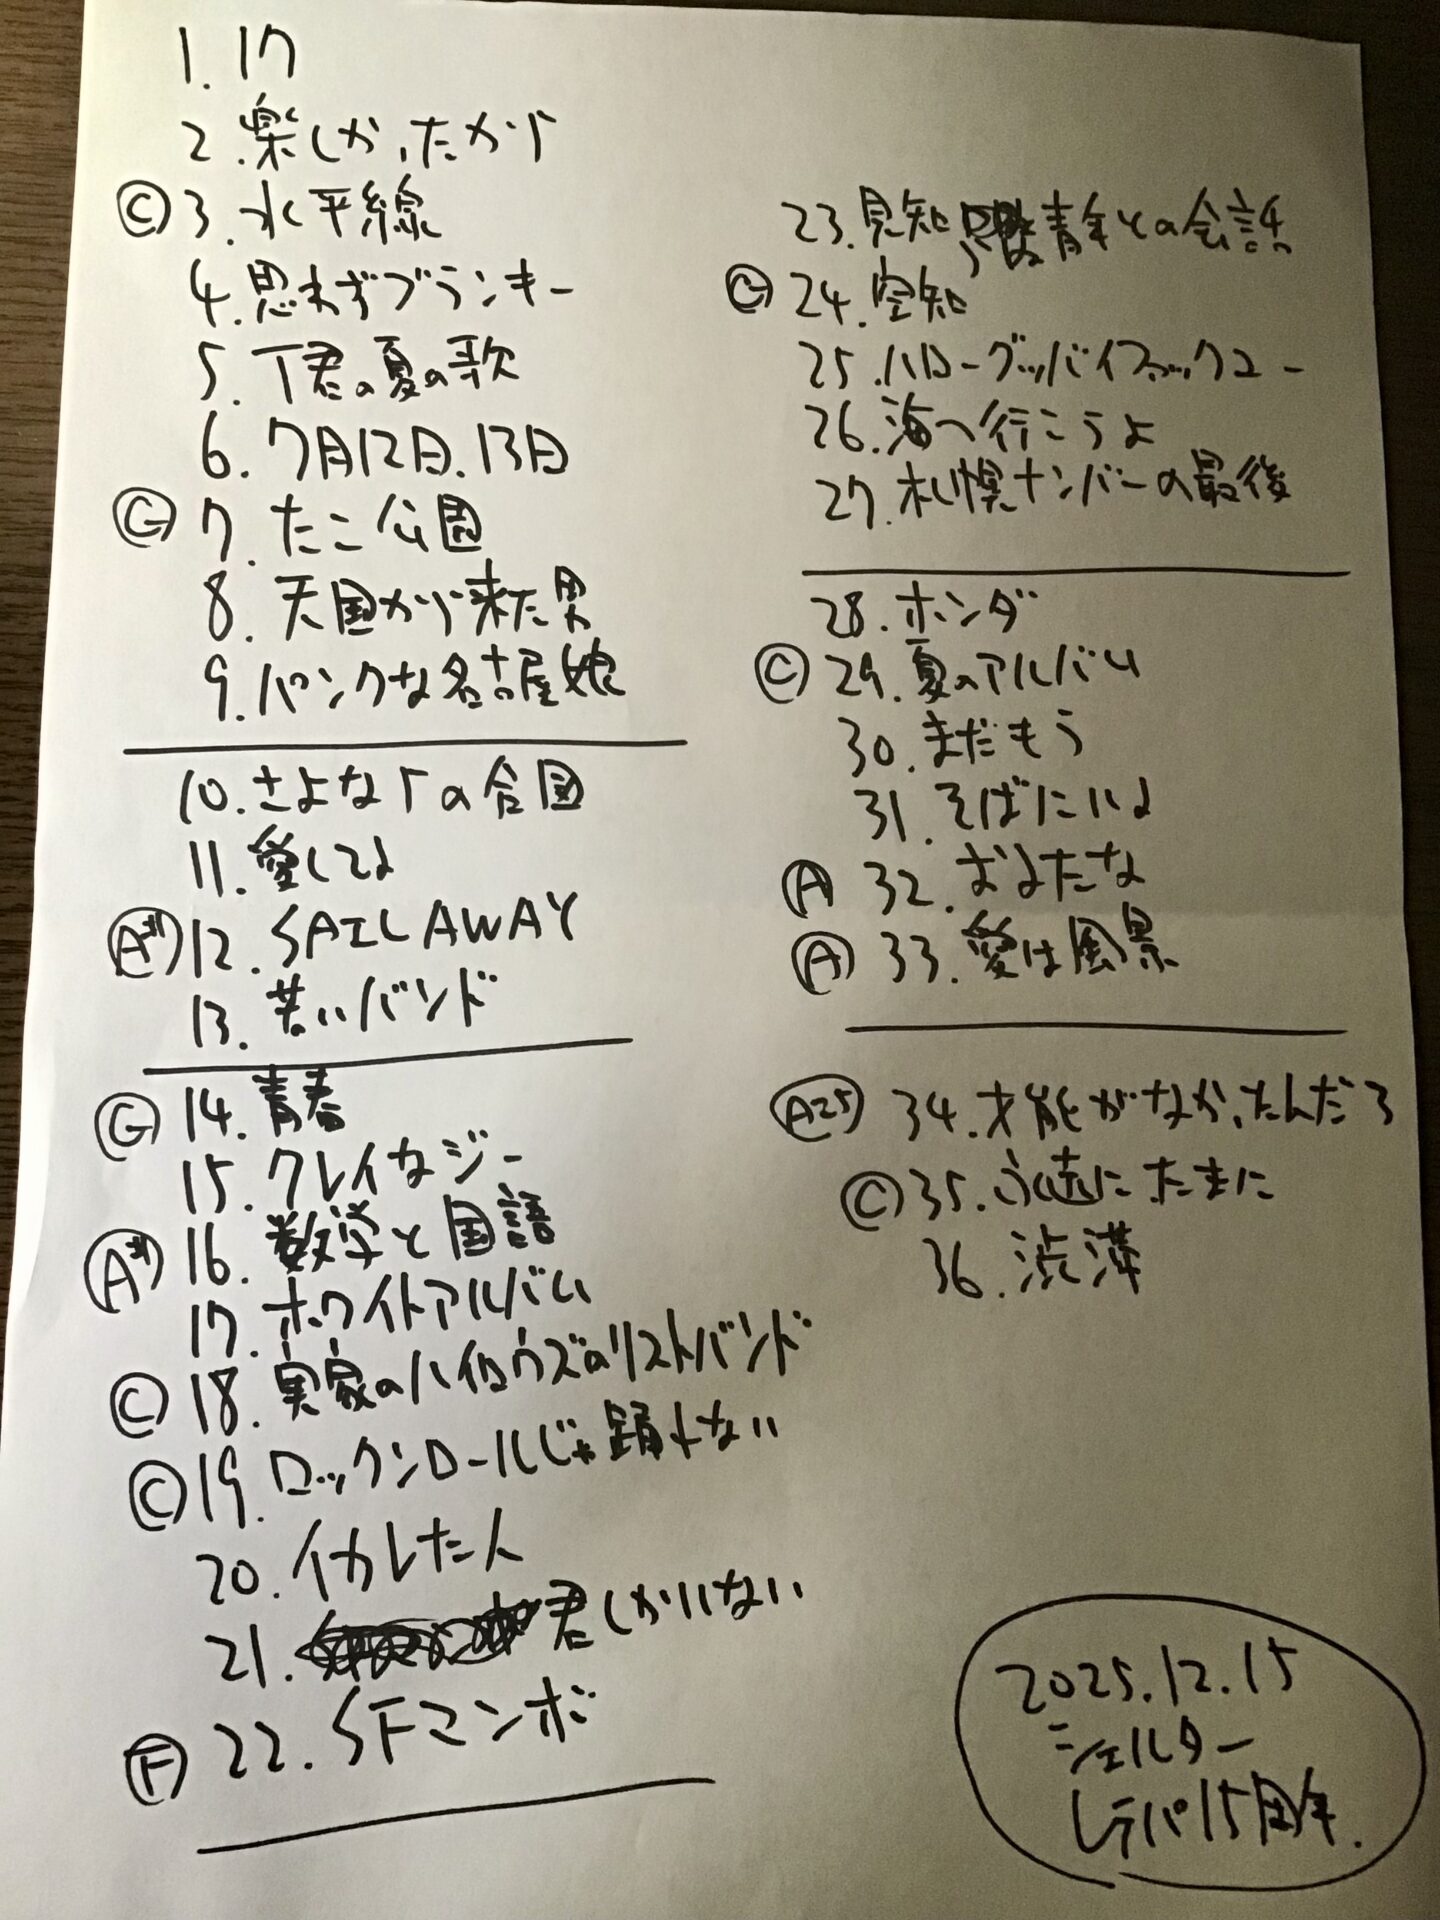 1. 17
2. 楽しかったから
Ⓒ 3. 水平線
4. 思わずブランキー
5. T君の夏の歌
6. 7月12日、13日
Ⓖ 7. たこ公園
8. 天国から来た男
9. パンクな名古屋娘
10. さよならの合図
11. 愛してよ
(A#) 12. SAIL AWAY
13. 若いバンド
Ⓖ 14. 青春
15. クレイなジー
(A#) 16. 数学と国語
17. ホワイトアルバム
Ⓒ 18. 実家のハイロウズのリストバンド
Ⓒ 19. ロックンロールじゃ踊れない
20. イカレた人
21. 君しかいない
Ⓕ 22. SFマンボ
23. 見知らぬ青年との会話
Ⓒ 24. 空知
25. ハローグッバイファックユー
26. 海へ行こうよ
27. 札幌ナンバーの最後
28. ホンダ
Ⓒ 29. 夏のアルバム
30. まだもう
31. そばにいよ
Ⓐ 32. おまたな
Ⓐ 33. 愛は風景
(A25) 34. 才能がなかったんだろ
Ⓒ 35. 永遠にたまに
36. 渋滞
2025.12.15
シェルター
レテパ15周年.